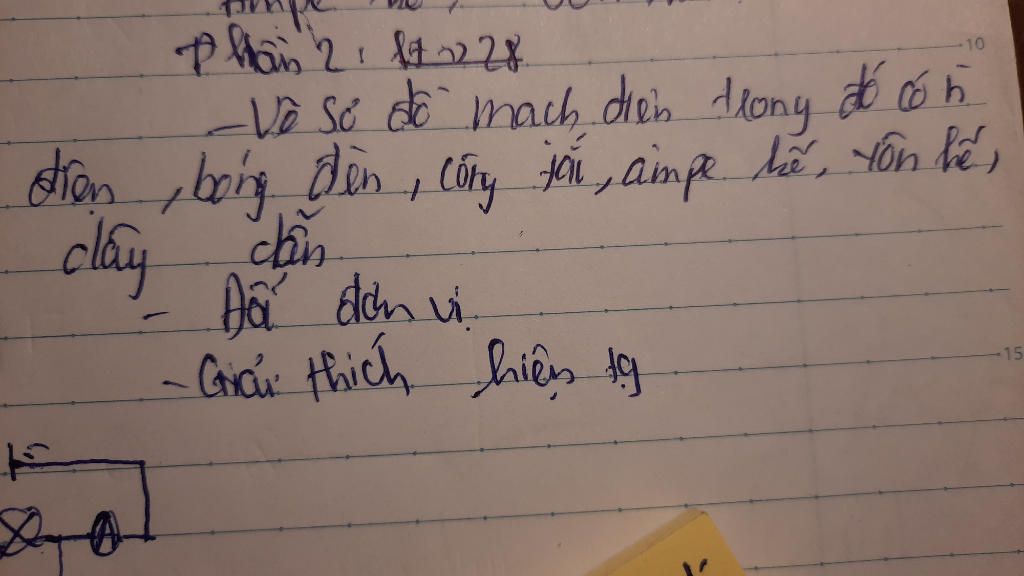 Ampe
Phần 2: 17 → 28
- Vẽ sơ đồ mạch điện trong đó có n
điện, bóng đèn, công tắc, ampe kế, vôn kế,
dây dẫn
- Đổi đơn vị
- Giải thích hiện tg
A
10
15